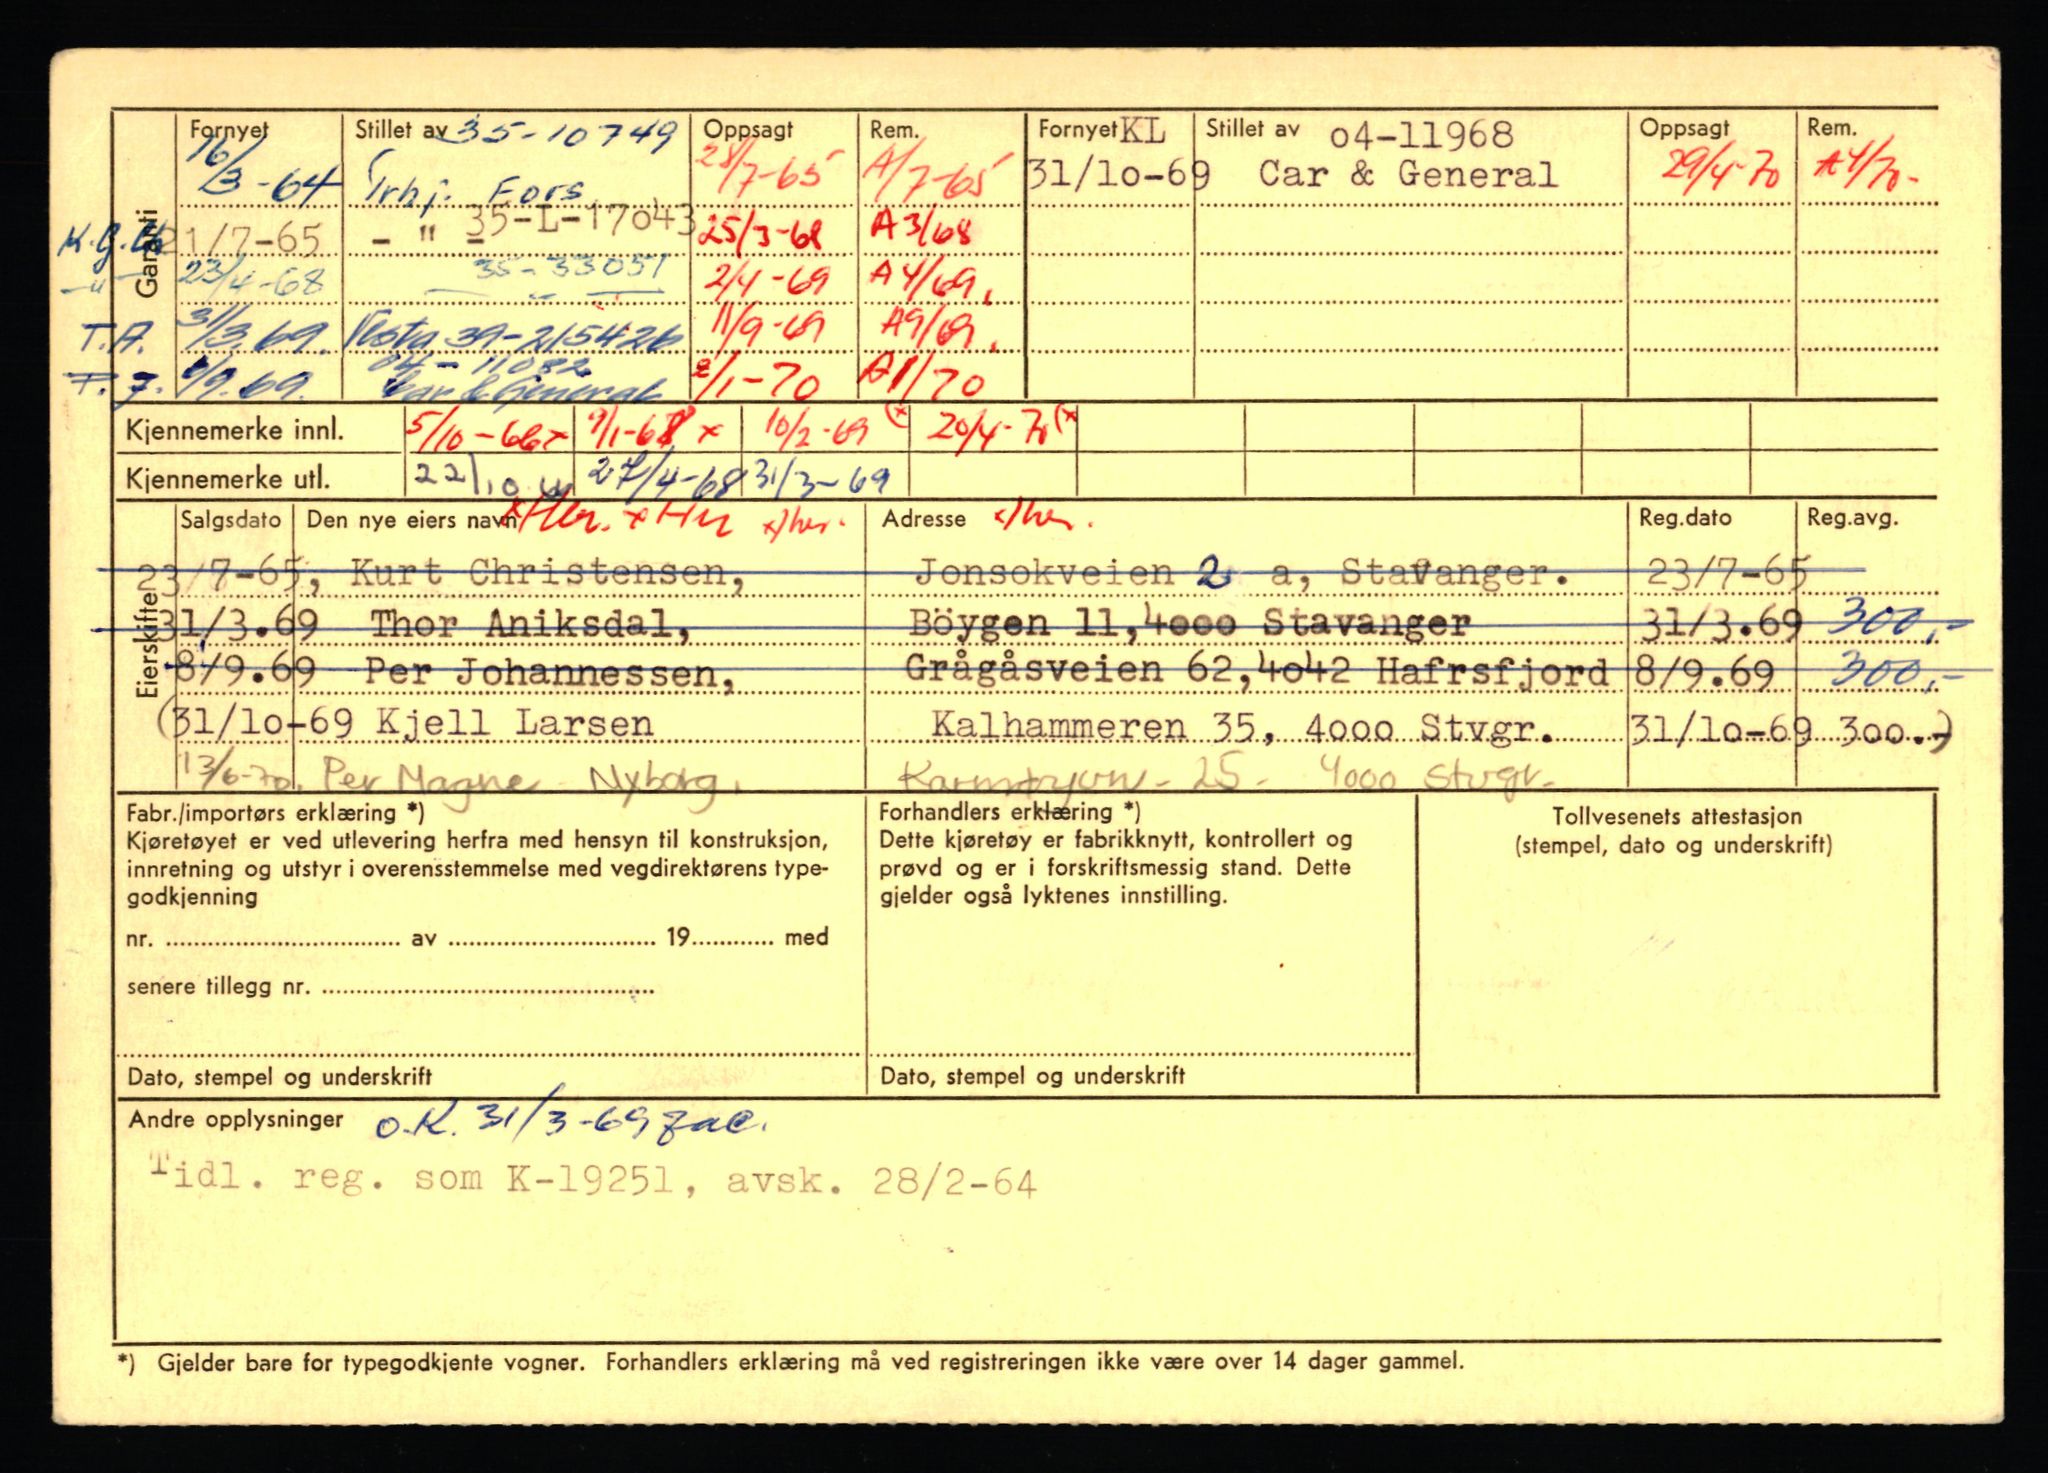 Fornyet Stillet av 35-10749 Oppsagt Rem. Fornyet KL Stillet av o4-11968 Oppsagt Rem.
16/3-64 Trhj. Fors 28/7-65 A/7-65 31/1o-69 Car & General 29/4-70 A4/70-
Garanti
K.G. 21/7-65 - " - 35-L-17043 25/3-68 A3/68
-"- 23/4-68 35-33051 2/4-69 A4/69.
T.A. 31/3.69. Vesta 39-215426 11/9-69 A9/69.
F.J. 8/9.69. 04-11082 2/1-70 A1/70
Car & General
Kjennemerke innl. 5/10-66x 9/1-68 x 10/2-69 (x 20/4-70 (x
Kjennemerke utl. 22/10 66 27/4-68 31/3-69
Salgsdato Den nye eiers navn x)Her. x Her x)her. Adresse x)her. Reg.dato Reg.avg.
Eierskifte
23/7-65, Kurt Christensen, Jonsokveien 2 a, Stavanger. 23/7-65
31/3.69 Thor Aniksdal, Böygen 11,4ooo Stavanger 31/3.69 300,-
8/9.69 Per Johannessen, Grågåsveien 62,4o42 Hafrsfjord 8/9.69 300,-
(31/1o-69 Kjell Larsen Kalhammeren 35, 4000 Stvgr. 31/1o-69 300.-)
13/6-70. Per Magne Nyborg. Karmøyvn- 25- 4000 Stvgr-
Fabr./importørs erklæring *) Forhandlers erklæring *) Tollvesenets attestasjon
Kjøretøyet er ved utlevering herfra med hensyn til konstruksjon, Dette kjøretøy er fabrikknytt, kontrollert og (stempel, dato og underskrift)
innretning og utstyr i overensstemmelse med vegdirektørens type- prøvd og er i forskriftsmessig stand. Dette
godkjenning gjelder også lyktenes innstilling.
nr. ........ av ........ 19........ med
senere tillegg nr. ........
Dato, stempel og underskrift Dato, stempel og underskrift
Andre opplysninger O.K. 31/3-69
Tidl. reg. som K-19251, avsk. 28/2-64
*) Gjelder bare for typegodkjente vogner. Forhandlers erklæring må ved registreringen ikke være over 14 dager gammel.